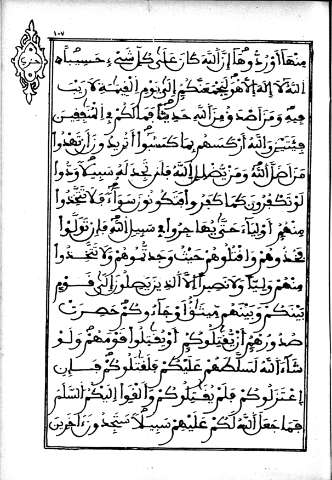 ١٠٧
حزب
منها أو ردوها إن الله كان على كل شيء حسيبا
الله لا إله إلا هو ليجمعنكم إلى يوم القيمة لا ريب
فيه ومن أصدق من الله حديثا فما لكم في المنفقين
فئتين والله أركسهم بما كسبوا أتريدون أن تهدوا
من أضل الله ومن يضلل الله فلن تجد له سبيلا ودوا
لو تكفرون كما كفروا فتكونون سواء فلا تتخذوا
منهم أولياء حتى يهاجروا في سبيل الله فإن تولوا
فخذوهم واقتلوهم حيث وجدتموهم ولا تتخذوا
منهم وليا ولا نصيرا إلا الذين يصلون إلى قوم
بينكم وبينهم ميثق أو جاءوكم حصرت
صدورهم أن يقتلوكم أو يقتلوا قومهم ولو
شاء الله لسلطهم عليكم فلقتلوكم فإن
اعتزلوكم فلم يقتلوكم وألقوا إليكم السلم
فما جعل الله لكم عليهم سبيلا ستجدون ءاخرين